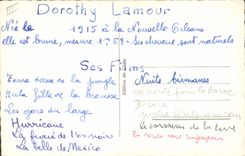 III
Dorothy Lamour
Née le 1915 à la Nouvelle Orléans
elle est brune, mesure 1m58. Ses cheveux sont naturels
Ses Films
Toura déesse de la jungle
Hula fille de la brousse
Les gars du large
Hurricane
La furie de l'or noir
La belle de Mexico
Nuits birmanes
le corsaire de la terre
En route vers Singapour